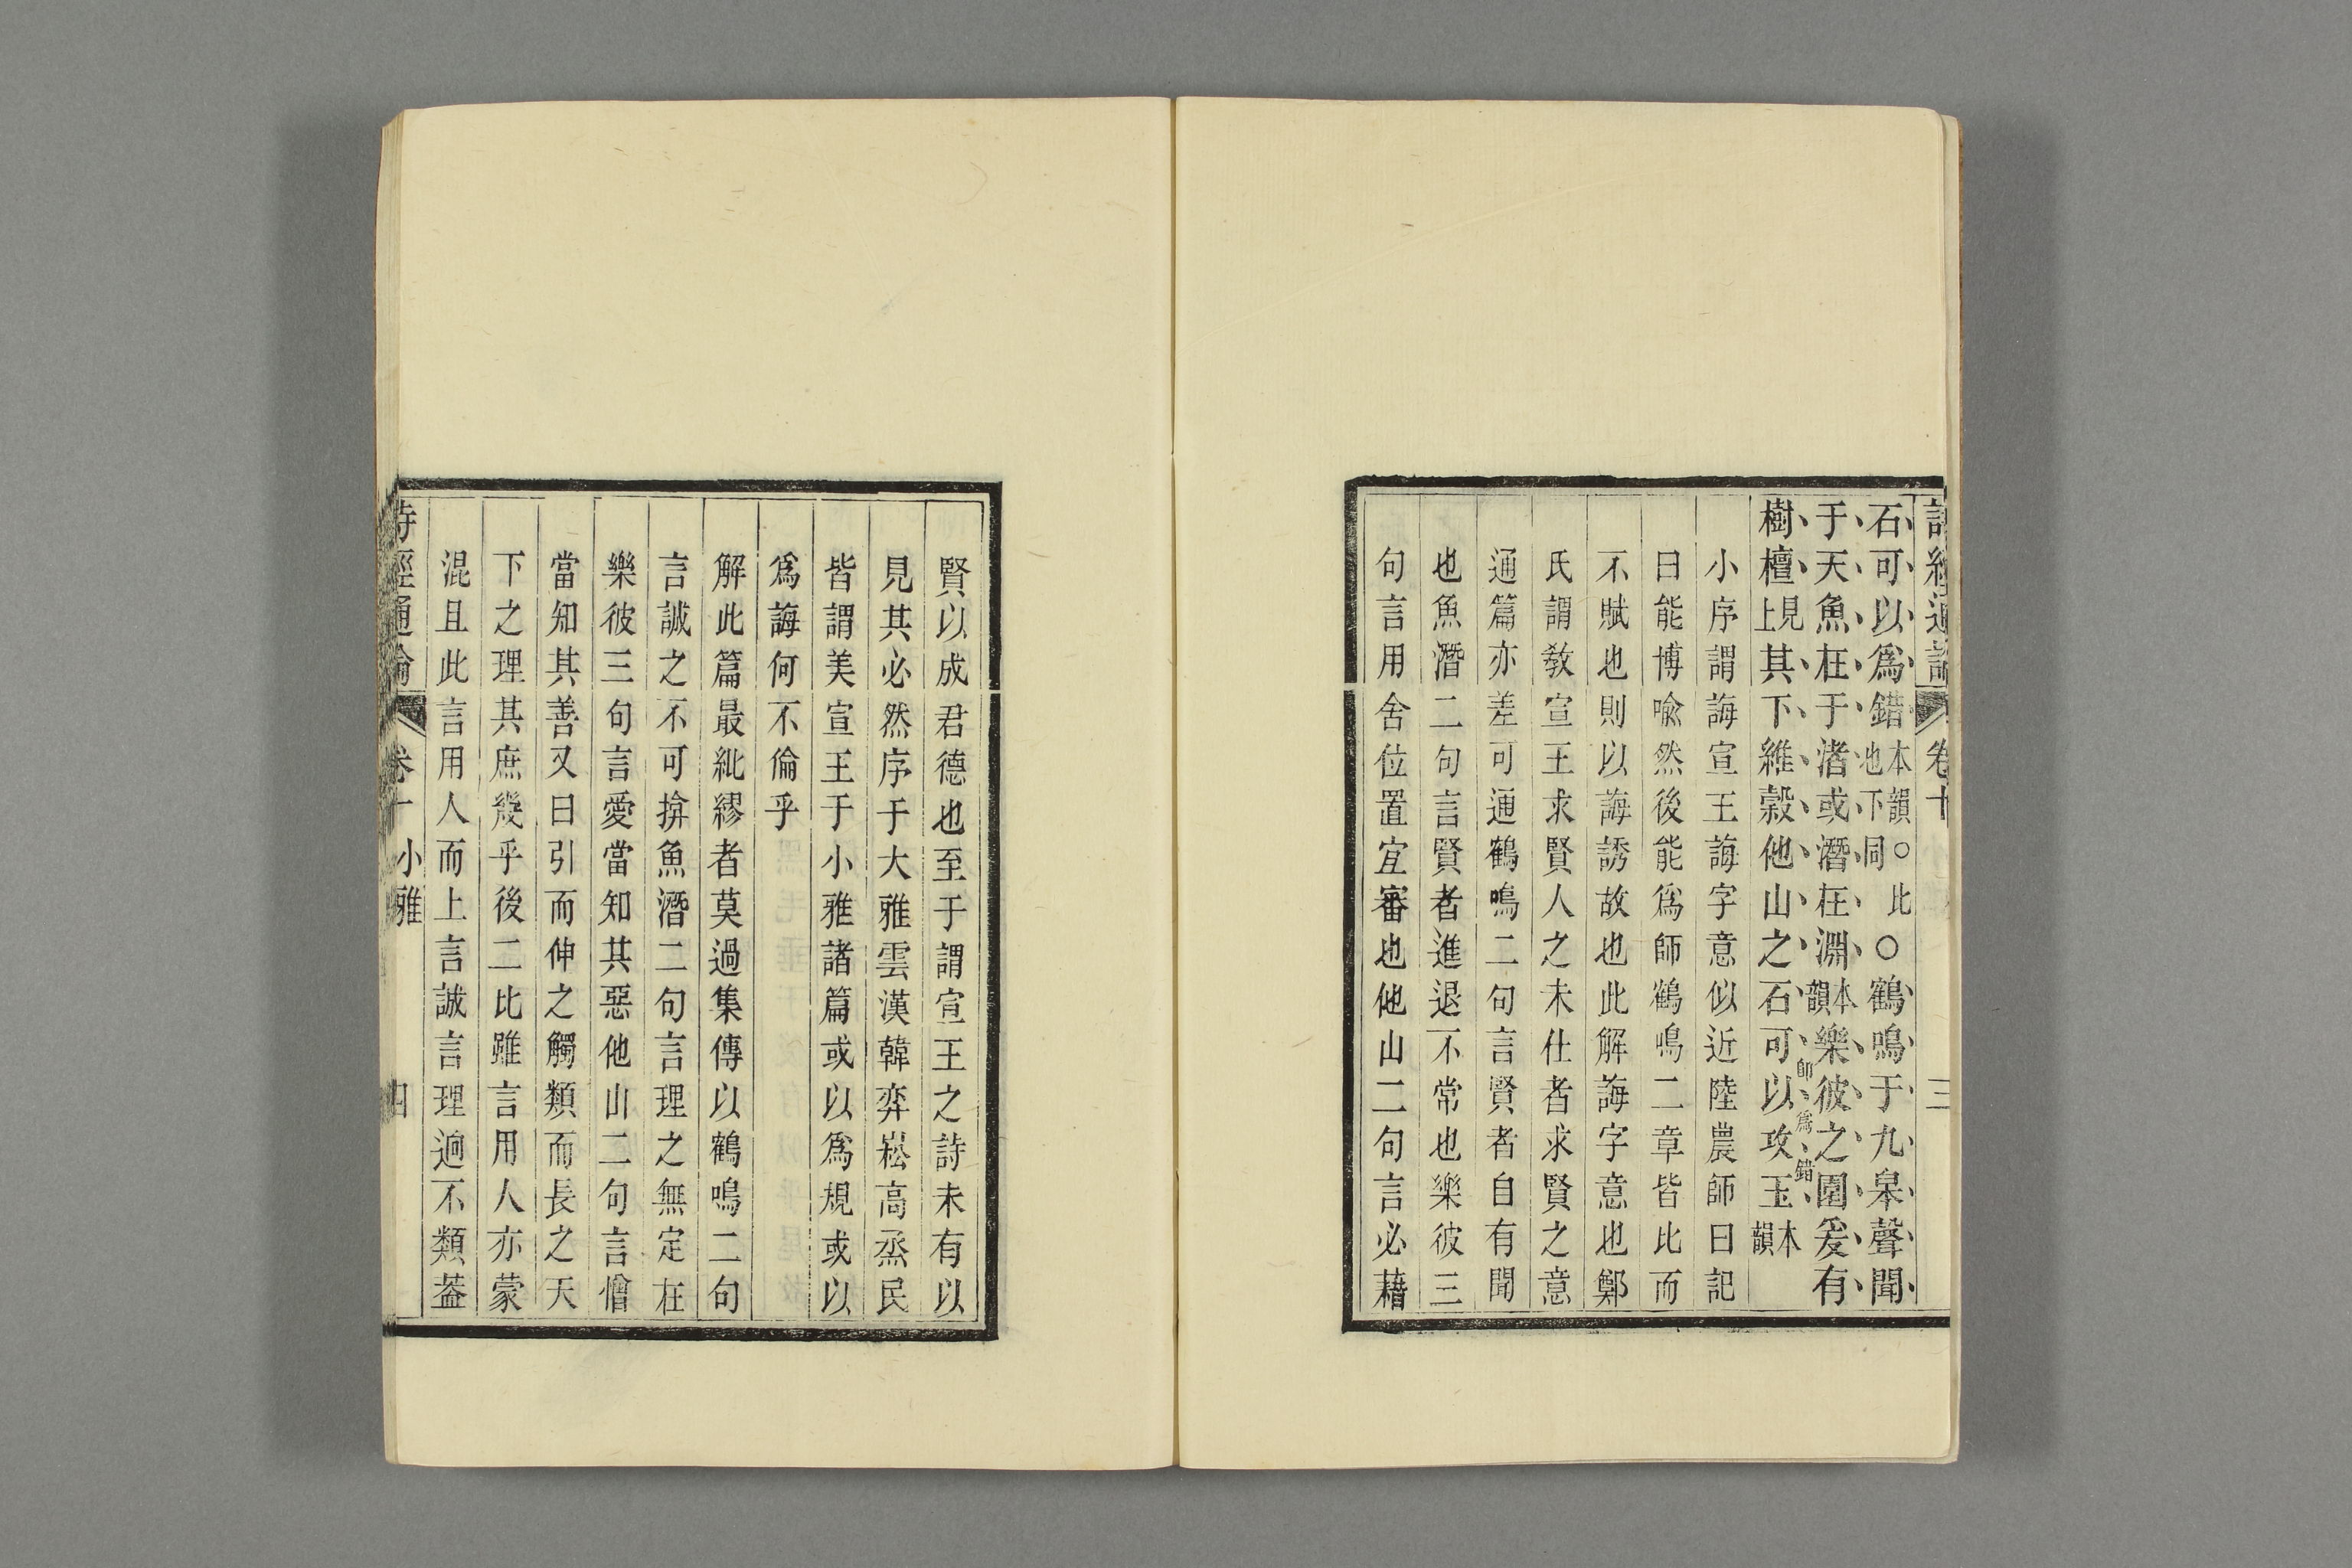 詩經通論 卷十 三
石可以爲錯本韻○此也下同○鶴鳴于九皋聲聞
于天魚在于渚或潛在淵本韻樂彼之園爰有
樹檀見上其下維穀他山之石可以攻玉本韻
卽爲錯
小序謂誨宣王誨字意似近陸農師曰記
曰能博喩然後能爲師鶴鳴二章皆比而
不賦也則以誨誘故也此解誨字意也鄭
氏謂敎宣王求賢人之未仕者求賢之意
通篇亦差可通鶴鳴二句言賢者自有聞
也魚潛二句言賢者進退不常也樂彼三
句言用舍位置宜審也他山二句言必藉
賢以成君德也至于謂宣王之詩未有以
見其必然序于大雅雲漢韓弈崧高烝民
皆謂美宣王于小雅諸篇或以爲規或以
爲誨何不倫乎
解此篇最紕繆者莫過集傳以鶴鳴二句
言誠之不可揜魚潛二句言理之無定在
樂彼三句言愛當知其惡他山二句言憎
當知其善又曰引而伸之觸類而長之天
下之理其庶幾乎後二比雖言用人亦蒙
混且此言用人而上言誠言理逈不類葢
詩經通論 卷十 小雅 四